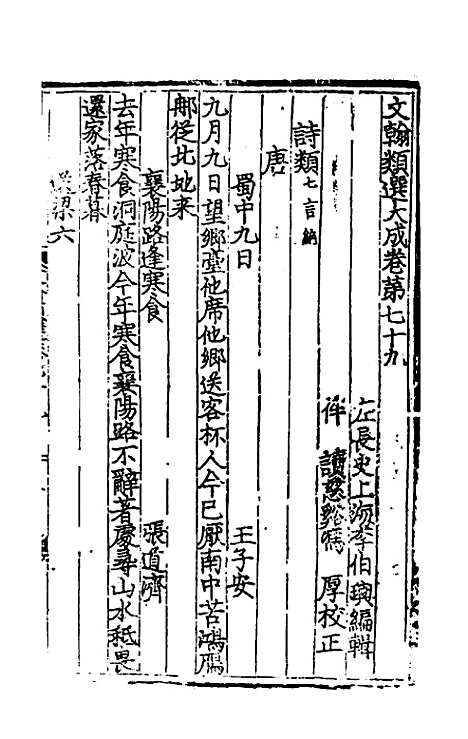 文翰類選大成卷第七十九
左長史上海李伯璵編輯
伴讀慈谿馮厚校正
詩類七言絕
唐
蜀中九日 王子安
九月九日望鄉臺他席他鄉送客杯人今已厭南中苦鴻鴈
那從北地來
襄陽路逢寒食 張道濟
去年寒食洞庭波今年寒食襄陽路不辭著處尋山水秪畏
還家落春暮
梁六